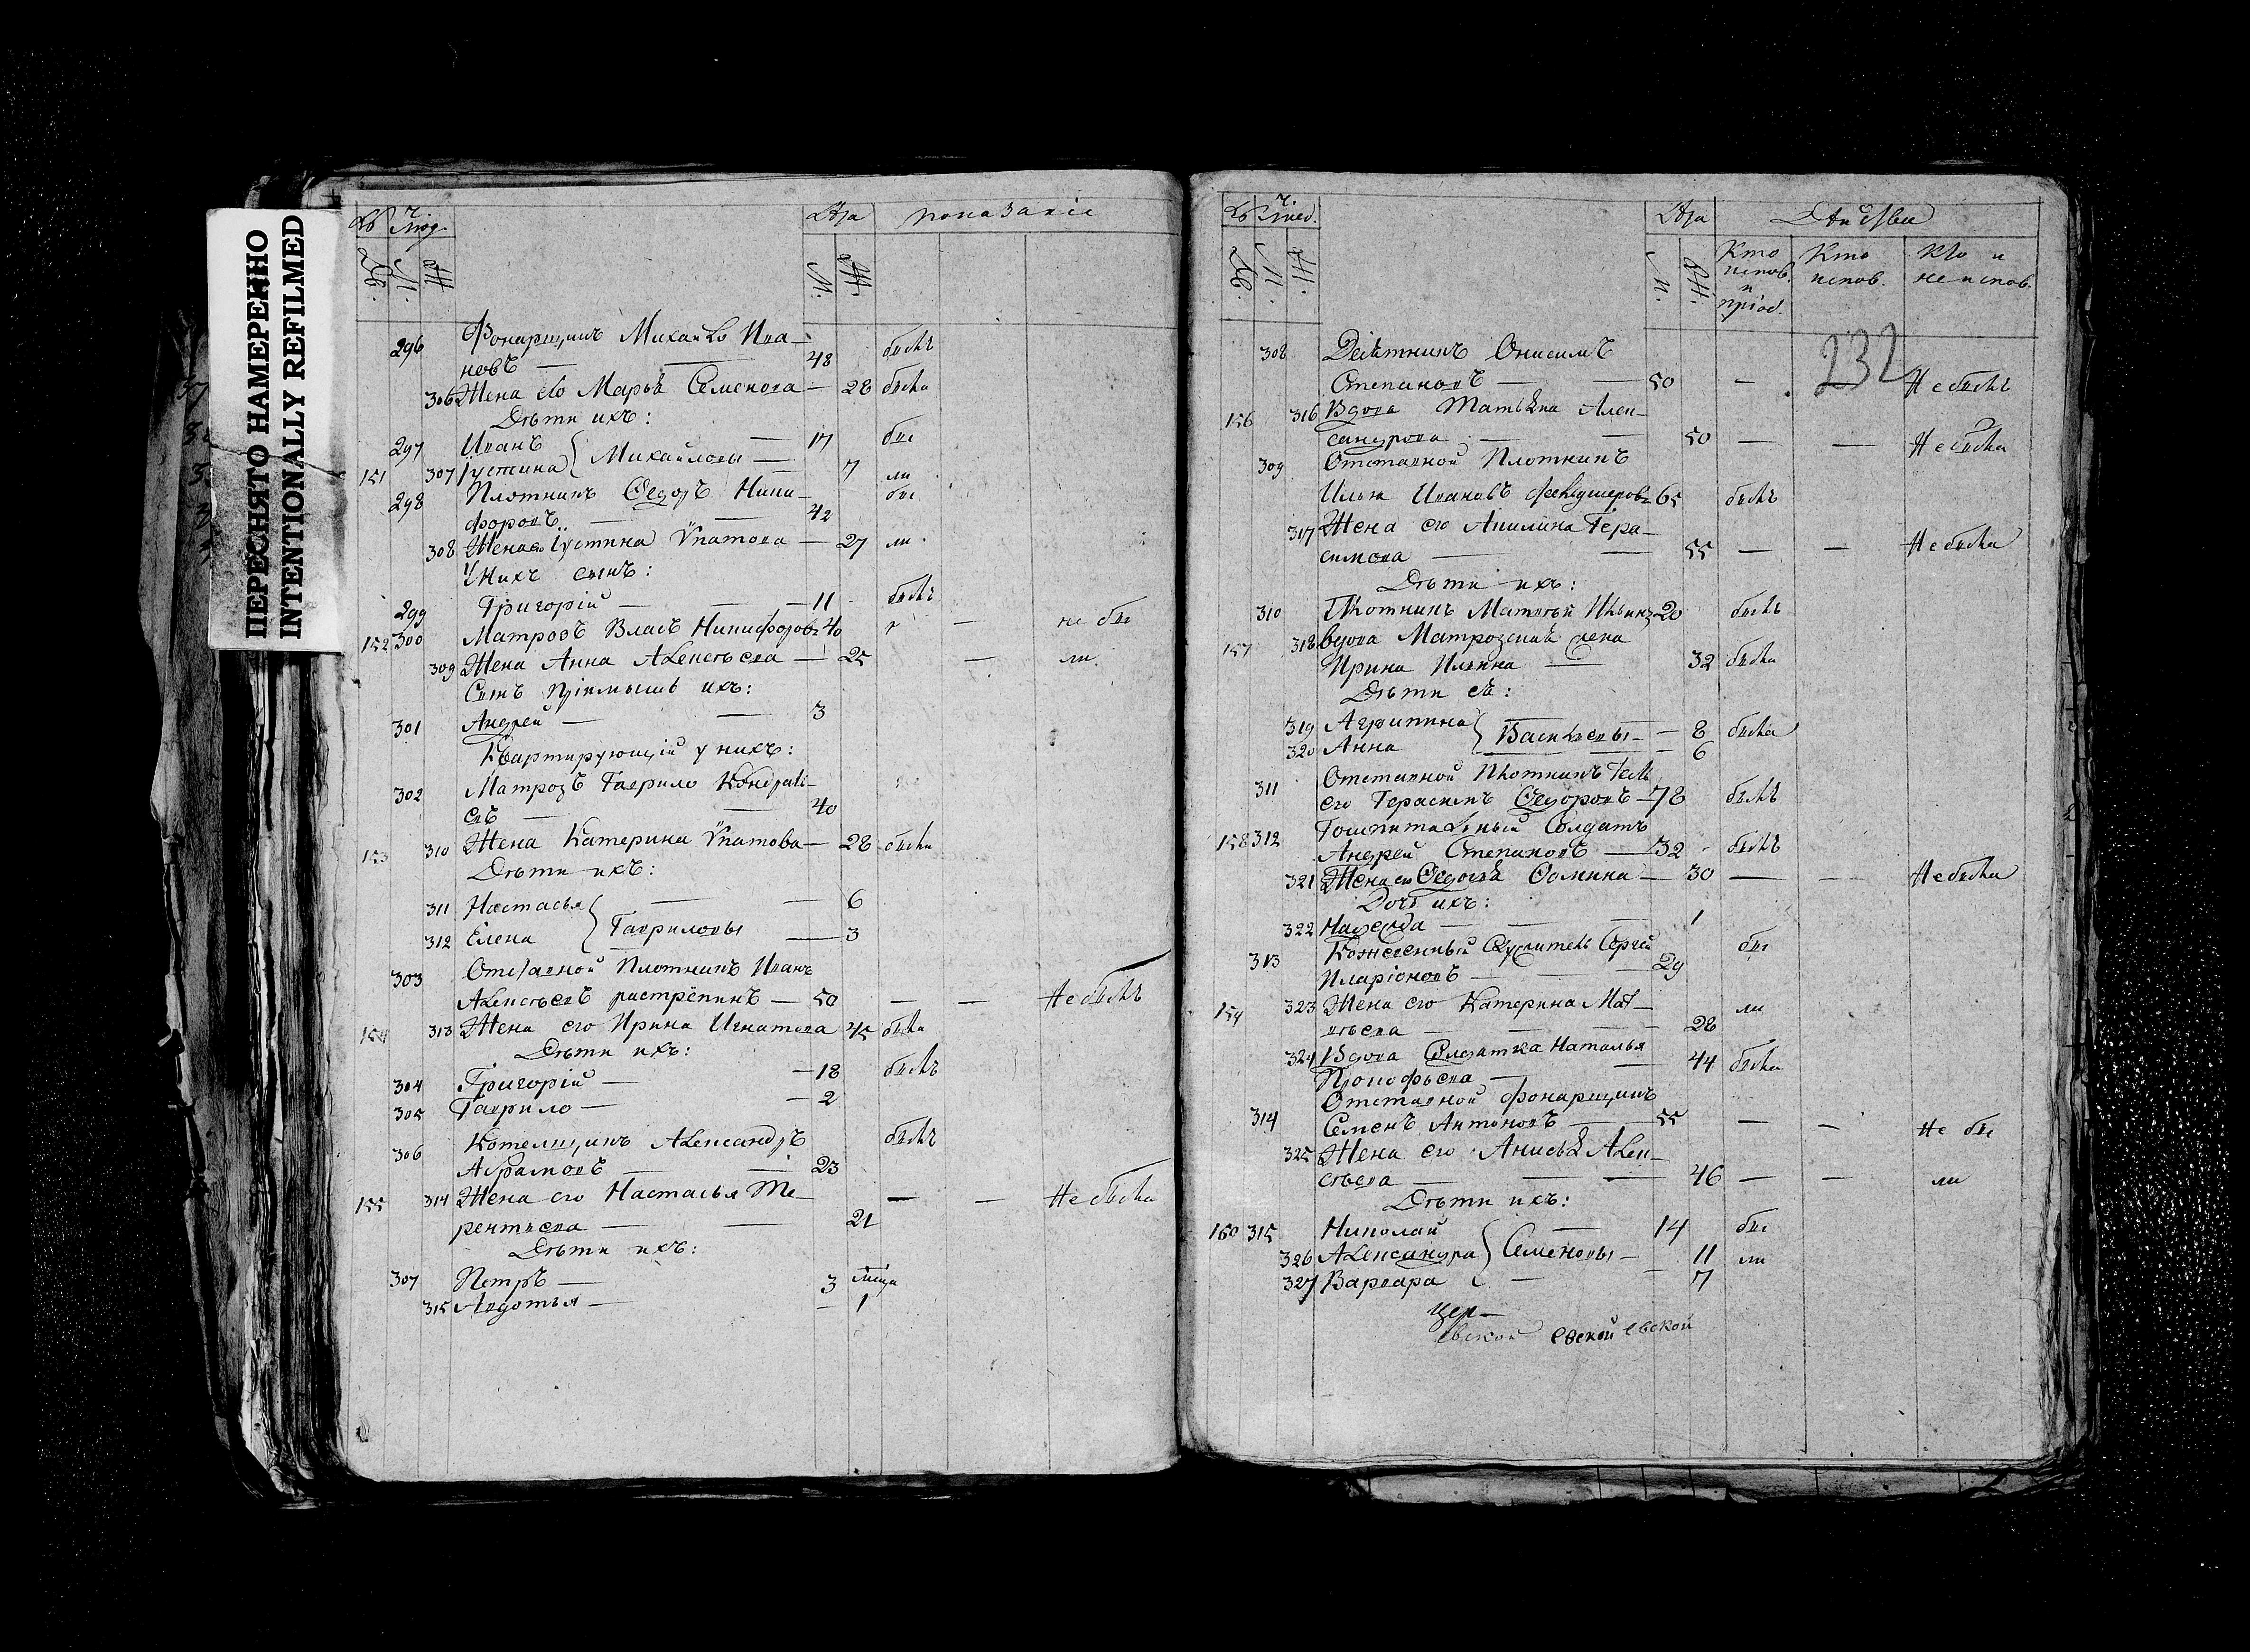 ПЕРЕСНЯТО НАМЕРЕННО
INTENTIONALLY REFILMED
Лѣта показаніе
М. Ж.
296 Фонарщикъ Михайло Ива-
новъ — 48 былъ
306 Жена его Марья Семенова — 28 была
Дѣти ихъ:
297 Иванъ — 17 бы
151 307 Іустина Михайловы — 7 ли
298 Плотникъ Ѳедоръ Ники- бы
форовъ — 42
308 Жена его Іустина Ѵпатова — 27 ли
У нихъ сынъ:
299 Григорій — 11 былъ
152 300 Матрозъ Власъ Никифоровъ 40 — не бы
309 Жена Анна Алексѣева — 25 — ли.
Сынъ пріемышъ ихъ:
301 Андрей — 3
Квартирующій у нихъ:
302 Матрозъ Гаврило Кондрать-
евъ — 40
153 310 Жена Катерина Ѵпатова — 28 была
Дѣти ихъ:
311 Настасья — 6
312 Елена Гавриловы — 3
303 Отставной Плотникъ Иванъ
Алексѣевъ растрёпинъ — 50 — — Не былъ
154 313 Жена его Ирина Игнатова 45 была
Дѣти ихъ:
304 Григорій — 18 былъ
305 Гаврило — 2
306 Котельщикъ Александръ былъ
Абрамовъ — 23
155 314 Жена его Настасья Те- — — Не была
рентьева — 21
Дѣти ихъ:
307 Петръ — 3
315 Авдотья — 1
Лѣта
М. Ж. Кто испов. и пріоб. Кто испов. Кто и не испов.
232
308 Десятникъ Онисимъ
Степановъ — 50 — Не былъ
156 316 Вдова Татьяна Алек-
сандрова — 50 — — Не была
309 Отставной Плотникъ
Илья Ивановъ 65 былъ
317 Жена его Акилина Гера-
симова — 55 — — Не была
Дѣти ихъ:
310 Плотникъ Матвѣй Ильинъ 20 былъ
157 318 вдова Матрозская жена
Ирина Ильина — 32 была
Дѣти ея:
319 Агрипина — 8 была
320 Анна Васильевы — 6
311 Отставной Плотникъ
его Герасимъ Ѳедоровъ — 78 былъ
158 312 Гошпитальный Солдатъ
Андрей Степановъ — 32 былъ
321 Жена его Ѳедосья Ѳомина — 30 — — Не была
Дочь ихъ:
322 Надежда — 1
313 Служитель Сергей бы
Иларіоновъ — 29
159 323 Жена его Катерина Мат- ли
вѣева — 28
324 Вдова Солдатка Наталья 44 была
Прокофьева —
Отставной фонарщикъ
314 Семенъ Антоновъ — 55 — — Не бы
325 Жена его Анисья Алек-
сѣева — 46 — — ли
Дѣти ихъ:
160 315 Николай — 14 бы
326 Александра Семеновы — 11 ли
327 Варвара — 7
Цер-
евской евской евской